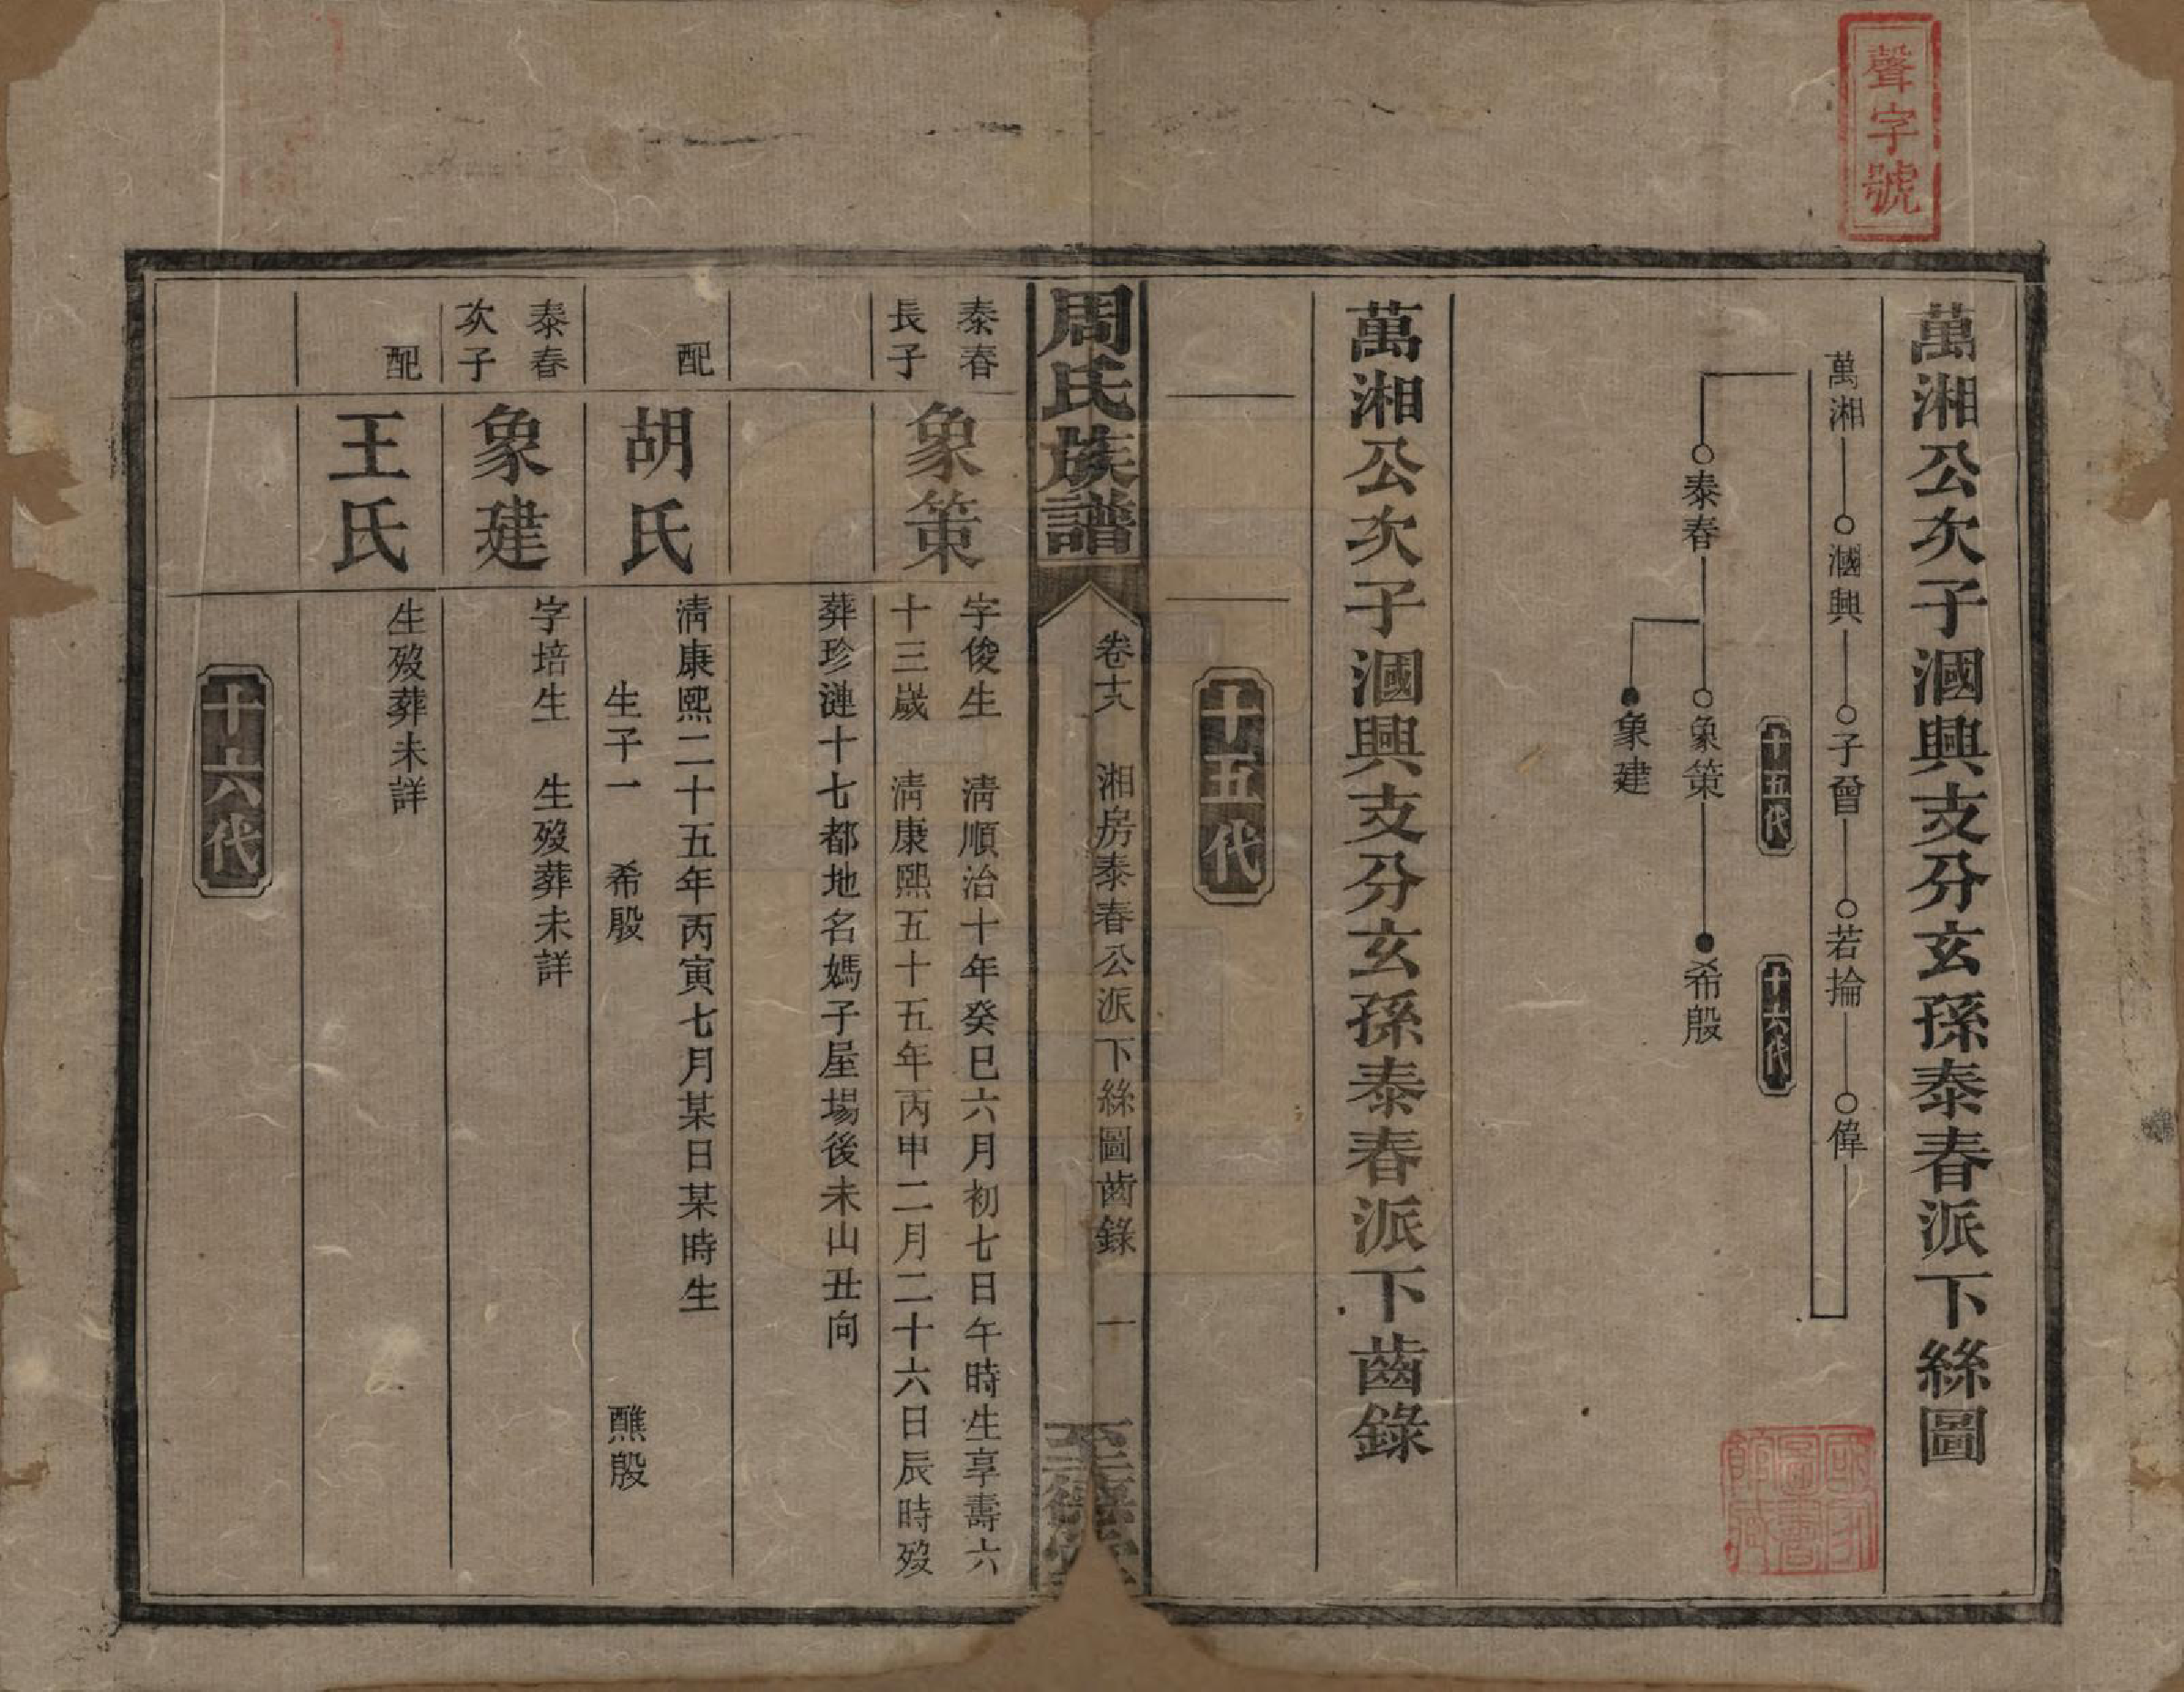 聲字號
萬湘公次子漍興支分玄孫泰春派下絲圖
萬湘 漍興 子曾 若掄 偉
十五代 十六代
泰春 象策 希殷
象建
國家圖書館藏
萬湘公次子漍興支分玄孫泰春派下齒錄
十五代
周氏族譜 卷十八 湘房泰春公派下絲圖齒錄 十
泰春長子 象策 字俊生 清順治十年癸巳六月初七日午時生享壽六
十三歲 清康熙五十五年丙申二月二十六日辰時歿
葬珍漣十七都地名媽子屋場後未山丑向
配 胡氏 清康熙二十五年丙寅七月某日某時生
生子一 希殷 醮殷
泰春次子 象建 字培生 生歿葬未詳
配 王氏 生歿葬未詳
十六代